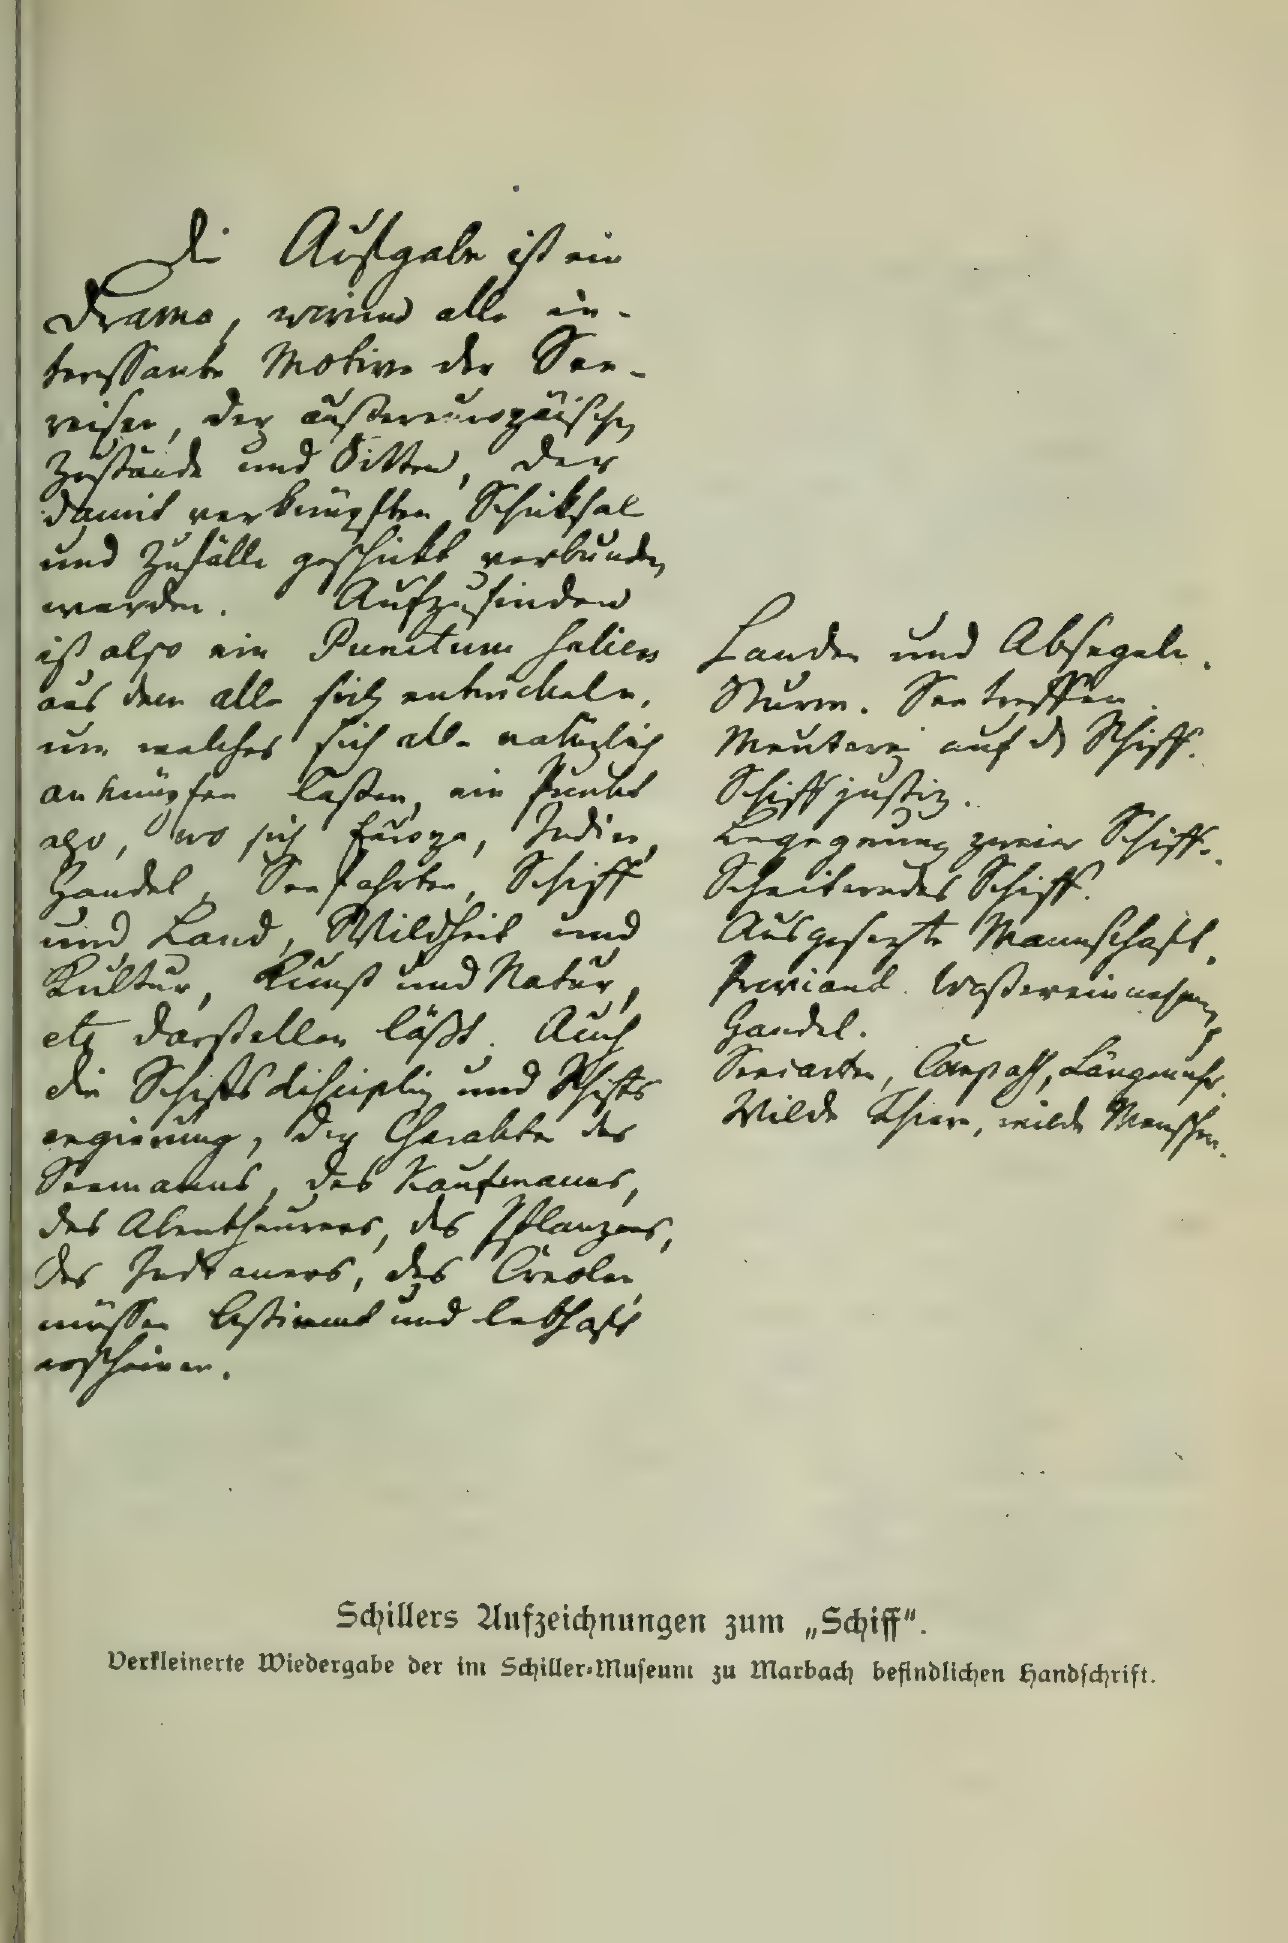 Die Aufgabe ist ein
Drama, worinn alle in-
teressante Motive der See-
reisen, der außereuropäischen
Zustände und Sitten, der
damit verknüpften Schiksale
und Zufälle geschickt verbunden
werden. Aufzufinden
ist also ein Punctum saliens
aus dem alle sich entwickeln,
um welches sich alle natürlich
anknüpfen laßen, ein Punkt
also, wo sich Europa, Indien,
Handel, Seefahrten, Schiff
und Land, Wildheit und
Kultur, Kunst und Natur,
etc darstellen läßt. Auch
die Schiffsdisciplin und Schiffs
regierung, der Charakter des
Seemanns, des Kaufmanns,
des Abentheurers, des Pflanzers,
des Indianers, des Creolen,
müssen bestimmt und lebhaft
erscheinen.
Landen und Absegeln.
Sturm. Seetreffen.
Meuterei auf d Schiff.
Schiffjustiz.
Begegnung zweier Schiffe.
Scheiterndes Schiff.
Ausgesezte Mannschaft.
Proviant. Waßereinnehmen,
Handel.
Seecarten, Compaß, Längenuhr.
Wilde Thiere, wilde Menschen.
Schillers Aufzeichnungen zum „Schiff".
Verkleinerte Wiedergabe der im Schiller-Museum zu Marbach befindlichen Handschrift.